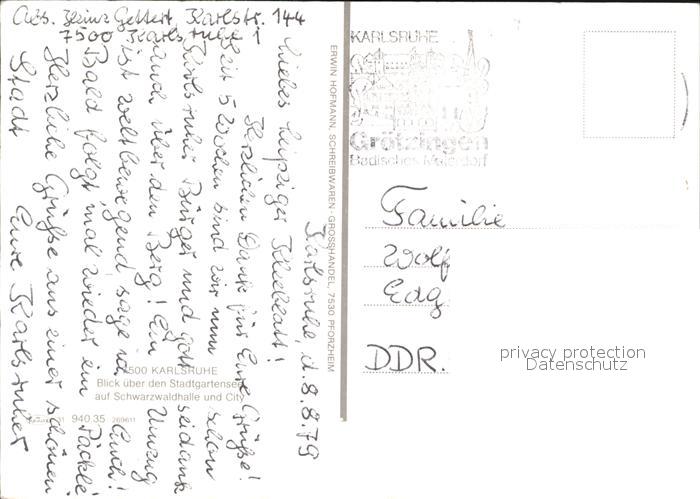 Abs. Heinz Gettert, Karlstr. 144
7500 Karlsruhe 1
Karlsruhe, d. 8.8.79
Liebes Leipziger Kleeblatt!
Herzlichen Dank für Eure Grüße!
Seit 5 Wochen sind wir nun schon
Karlsruher Bürger und gottseidank
auch über den Berg! Ein Umzug
ist weltbewegend, sage ich Euch!
Bald folgt mal wieder ein Päckle
Herzliche Grüße aus einer schönen
Stadt Eure Karlsruher
7500 KARLSRUHE
Blick über den Stadtgartensee
auf Schwarzwaldhalle und City
31 940.35 269611
ERWIN HOFMANN, SCHREIBWAREN-GROSSHANDEL, 7530 PFORZHEIM
KARLSRUHE
Grötzingen
Badisches Malerdorf
Familie
Wolf
Edg
DDR.
privacy protection
Datenschutz